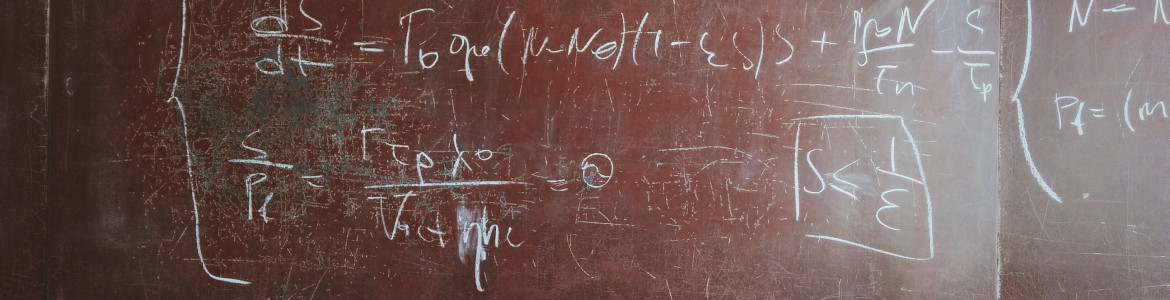 dS/dt = Γ₀ g₀(N-N₀)(1-εS)S + Γβ₀N/τn - S/τp
N = N
S/Pf = Γτpλ₀/Vact ηhc = ϑ
S ≤ 1/ε
Pf = (m